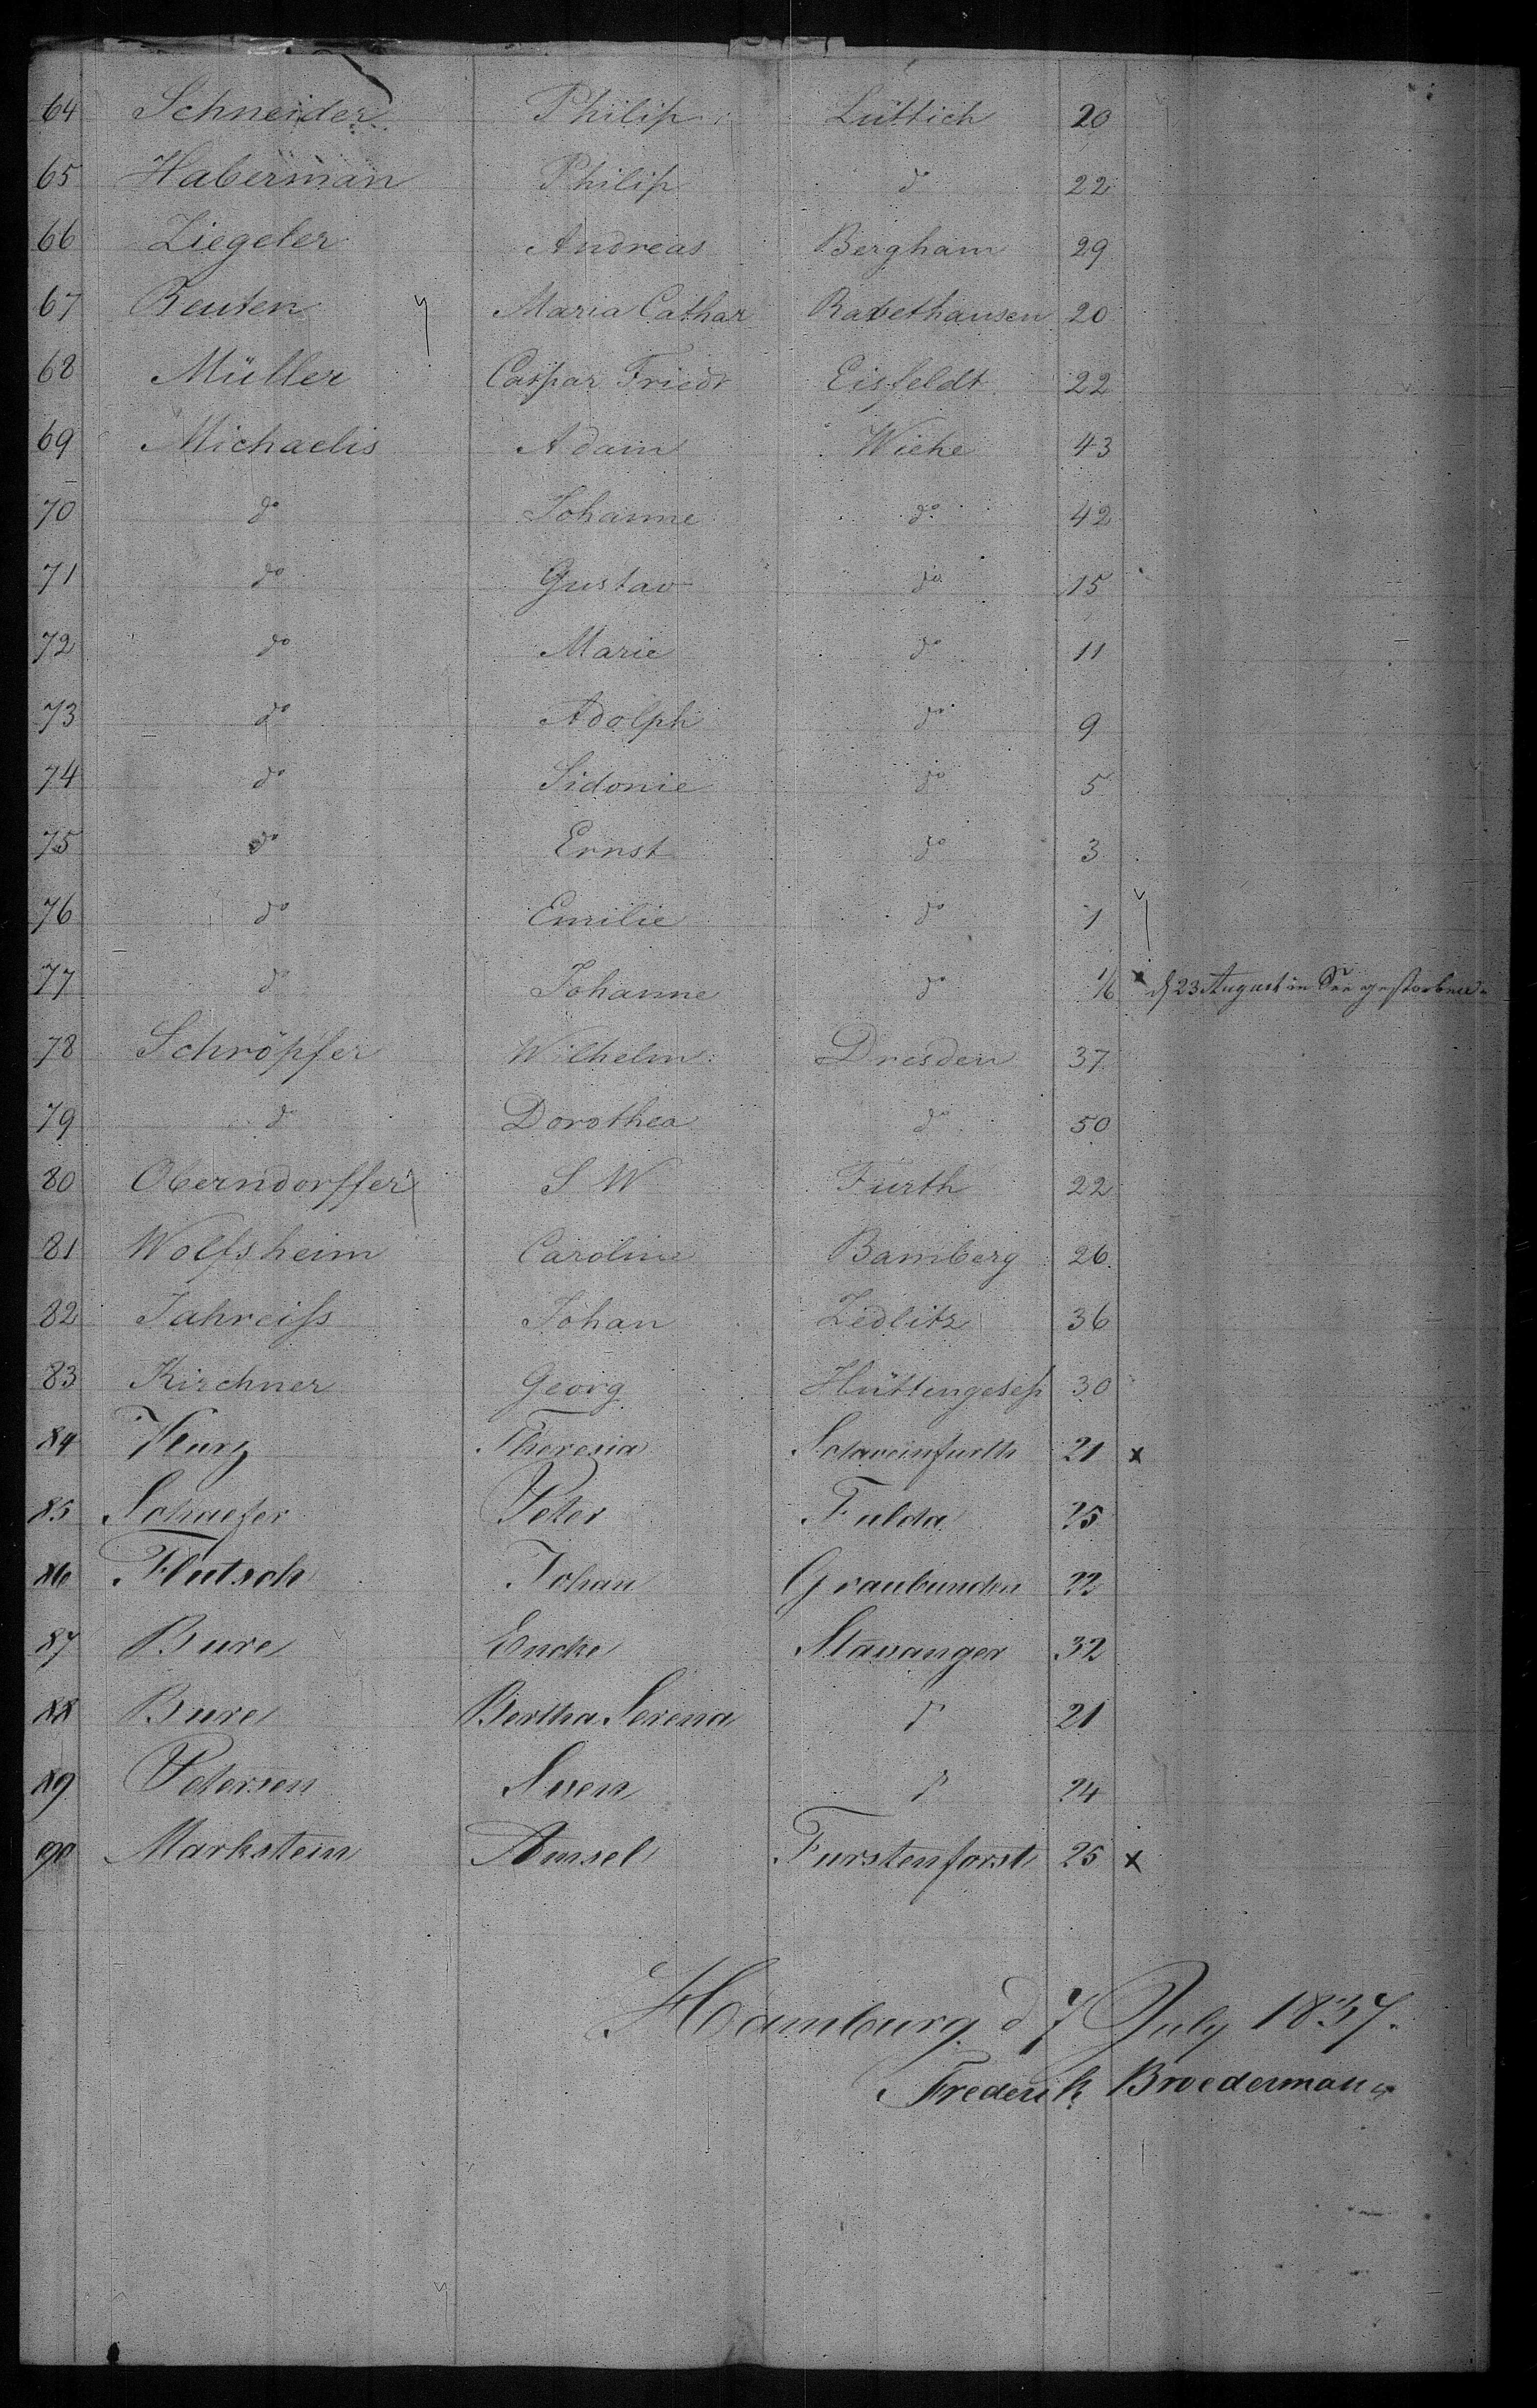 64 Schneider Philip Lüttich 20
65 Haberman Philip do 22
66 Ziegeler Andreas Bergham 29
67 Beuten Maria Cathar Ravethausen 20
68 Müller Caspar Friedr Eisfeldt 22
69 Michaelis Adam Wiehe 43
70 do Johanne do 42
71 do Gustav do 15
72 do Marie do 11
73 do Adolph do 9
74 do Sidonie do 5
75 do Ernst do 3
76 do Emilie do 1
77 do Johanne do 1/6 x d 23 August in See gestorben.
78 Schröpfer Wilhelm Dresden 37
79 do Dorothea do 50
80 Oberndorffer S W Furth 22
81 Wolfsheim Caroline Bamberg 26
82 Jahreiss Johan Zedlitz 36
83 Kirchner Georg Hüttingesess 30
84 Kurz Theresia Schweinfurth 21 x
85 Schaefer Peter Fulda 25
86 Flutsch Johan Graubunden 22
87 Bure Encke Stavanger 32
88 Bure Bertha Serena do 21
89 Petersen Suen do 24
90 Markstein Amsel Furstenforst 25 x
Hamburg d 7 July 1837.
Frederik Broederman